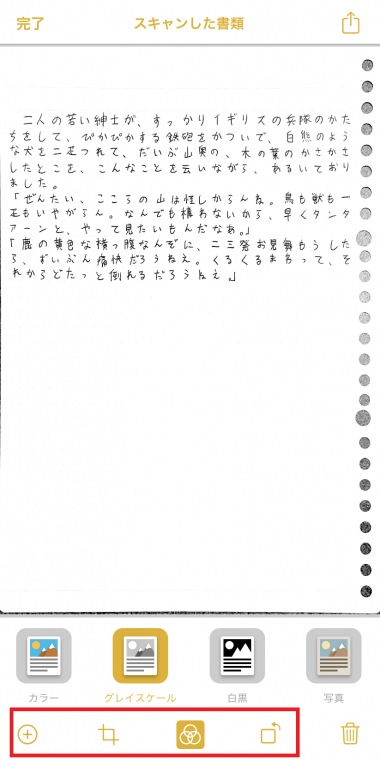 完了 スキャンした書類
二人の若い紳士が、すっかりイギリスの兵隊のかた
ちをして、ぴかぴかする鉄砲をかついで、白熊のよう
な犬を二疋つれて、だいぶ山奥の、木の葉のかさかさ
したとこを、こんなことを云いながら、あるいており
ました。
「ぜんたい、ここらの山は怪しからんね。鳥も獣も一
疋もいやがらん。なんでも構わないから、早くタンタ
アーンと、やって見たいもんだなあ。」
「鹿の黄色な横っ腹なんぞに、二三発お見舞もうした
ら、ずいぶん痛快だろうねえ。くるくるまわって、そ
れからどたっと倒れるだろうねえ。」
カラー グレイスケール 白黒 写真